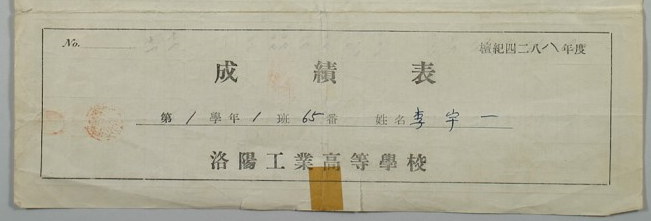 No. 檀紀四二八八年度
成績表
第1學年1班65番 姓名 李宇一
洛陽工業高等學校